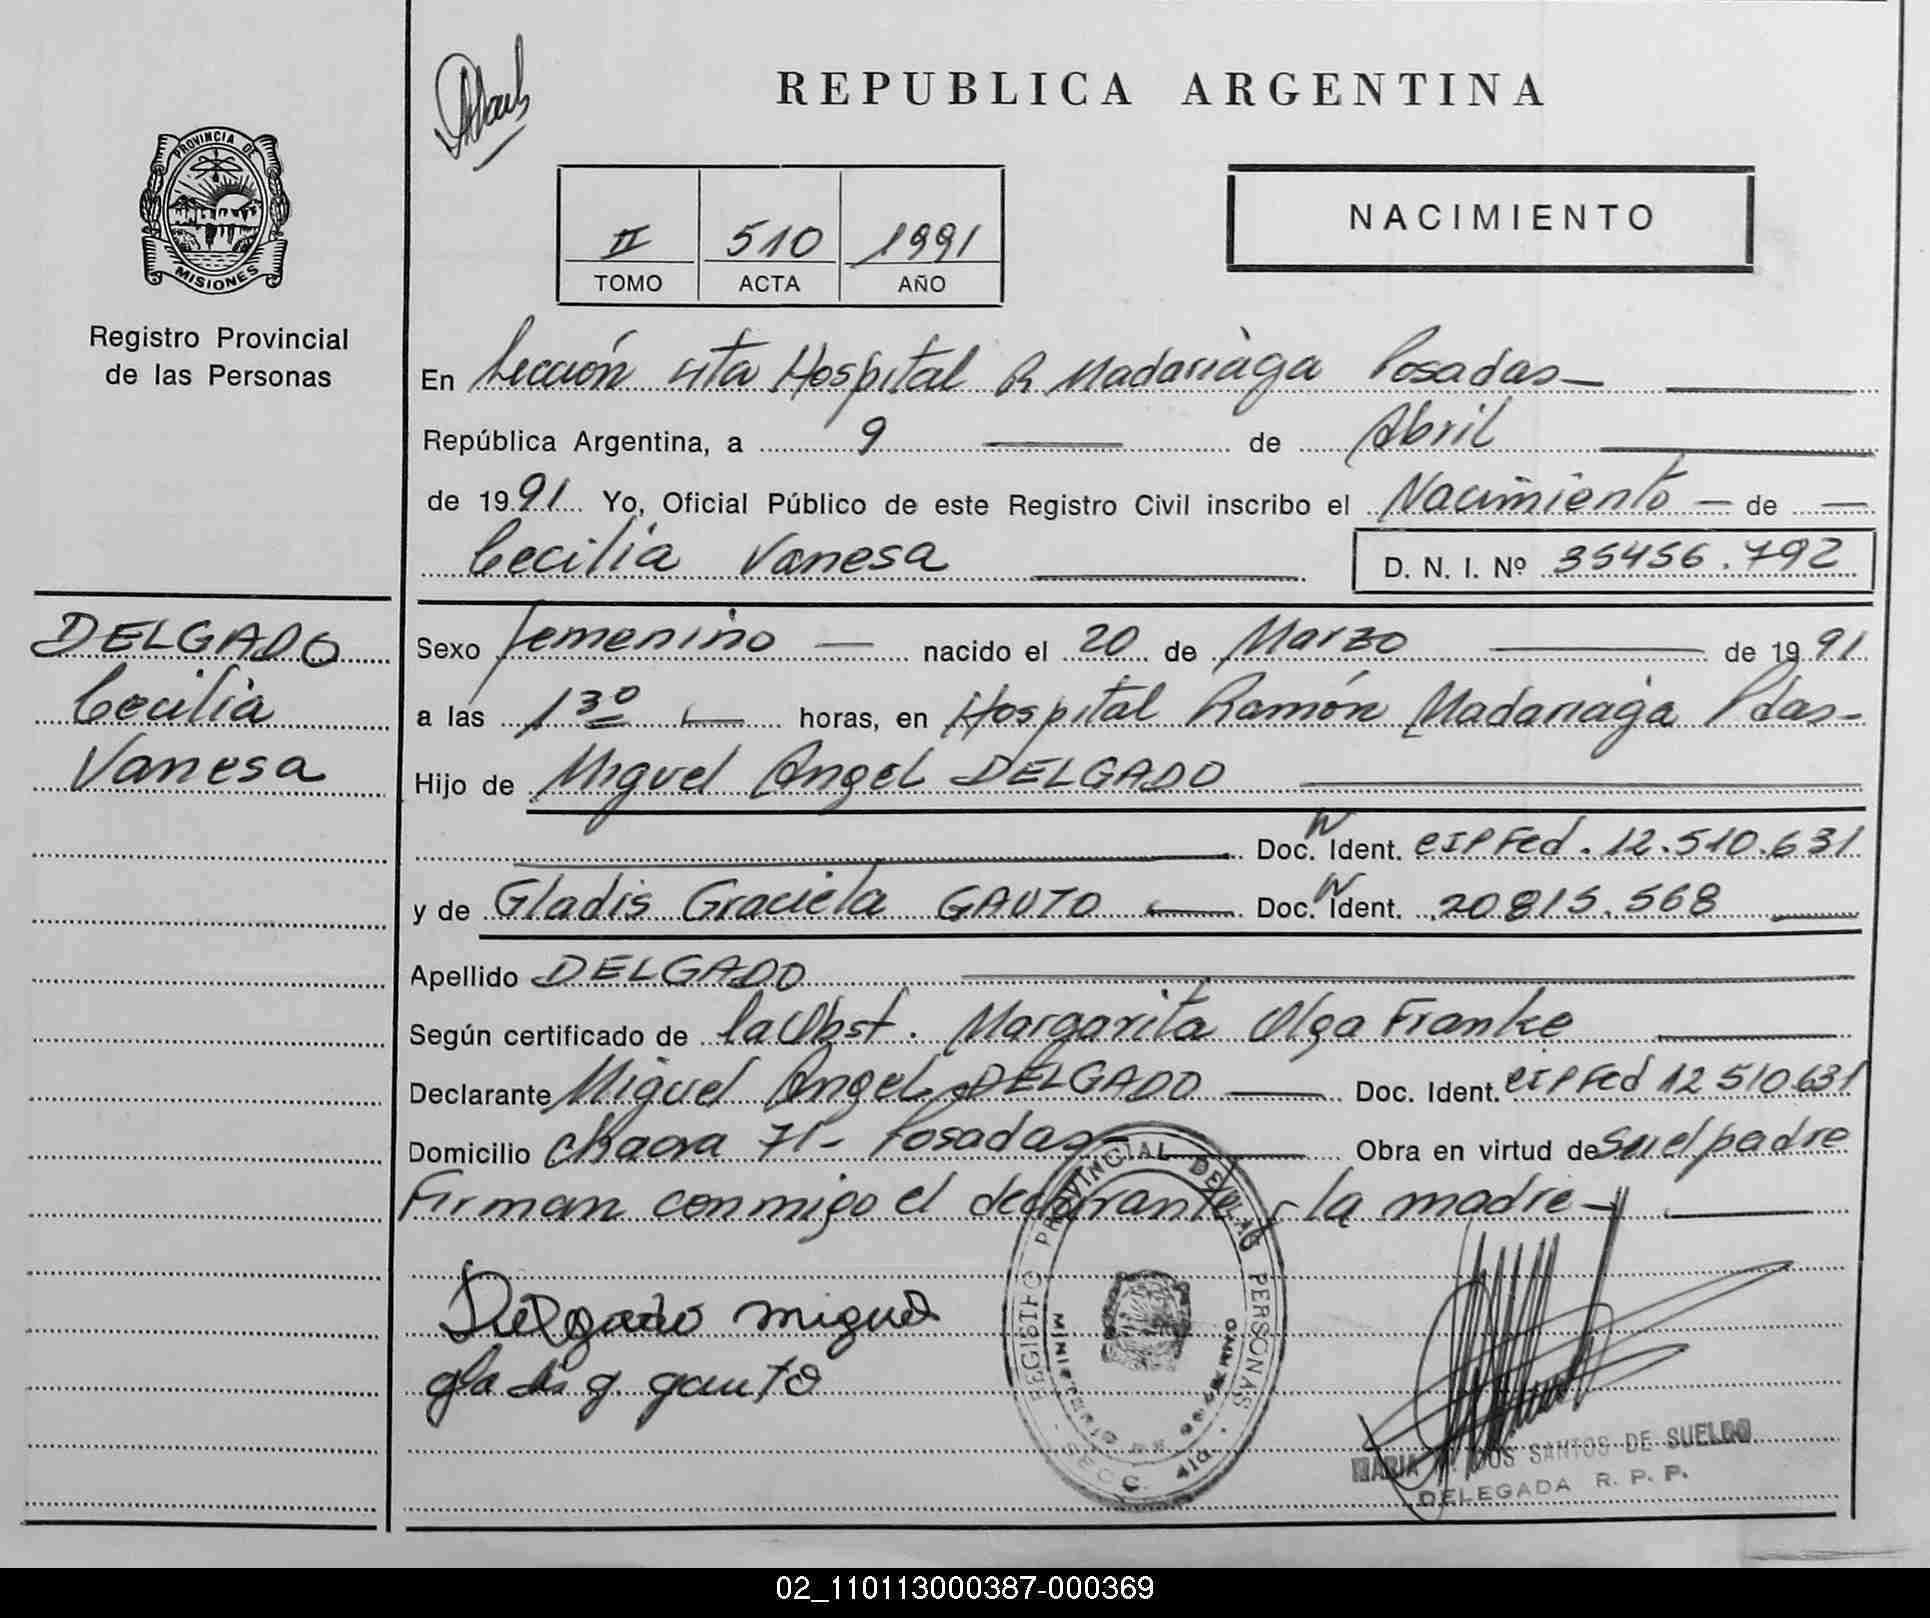 REPUBLICA ARGENTINA
PROVINCIA DE
MISIONES
Registro Provincial
de las Personas
II 510 1991
TOMO ACTA AÑO
NACIMIENTO
En Sección sita Hospital R Madariaga Posadas
República Argentina, a 9 de Abril
de 1991 Yo, Oficial Público de este Registro Civil inscribo el Nacimiento de
Cecilia Vanesa D. N. I. Nº 35456.792
DELGADO
Cecilia
Vanesa
Sexo femenino nacido el 20 de Marzo de 1991
a las 13º horas, en Hospital Ramón Madariaga Pdas
Hijo de Miguel Angel DELGADO
Doc. Ident. CIPFed. 12.510.631
y de Gladis Graciela GAUTO Doc. Ident. 20815.568
Apellido DELGADO
Según certificado de la Obst. Margarita Olga Franke
Declarante Miguel Angel DELGADO Doc. Ident. CIPFed 12510631
Domicilio Chacra 71- Posadas Obra en virtud de su el padre
Firman conmigo el declarante y la madre
REGISTRO PROVINCIAL DE LAS PERSONAS
Delgado miguel
gladis g. gauto
MARIA DOS SANTOS DE SUELDO
DELEGADA R. P. P.
02_110113000387-000369